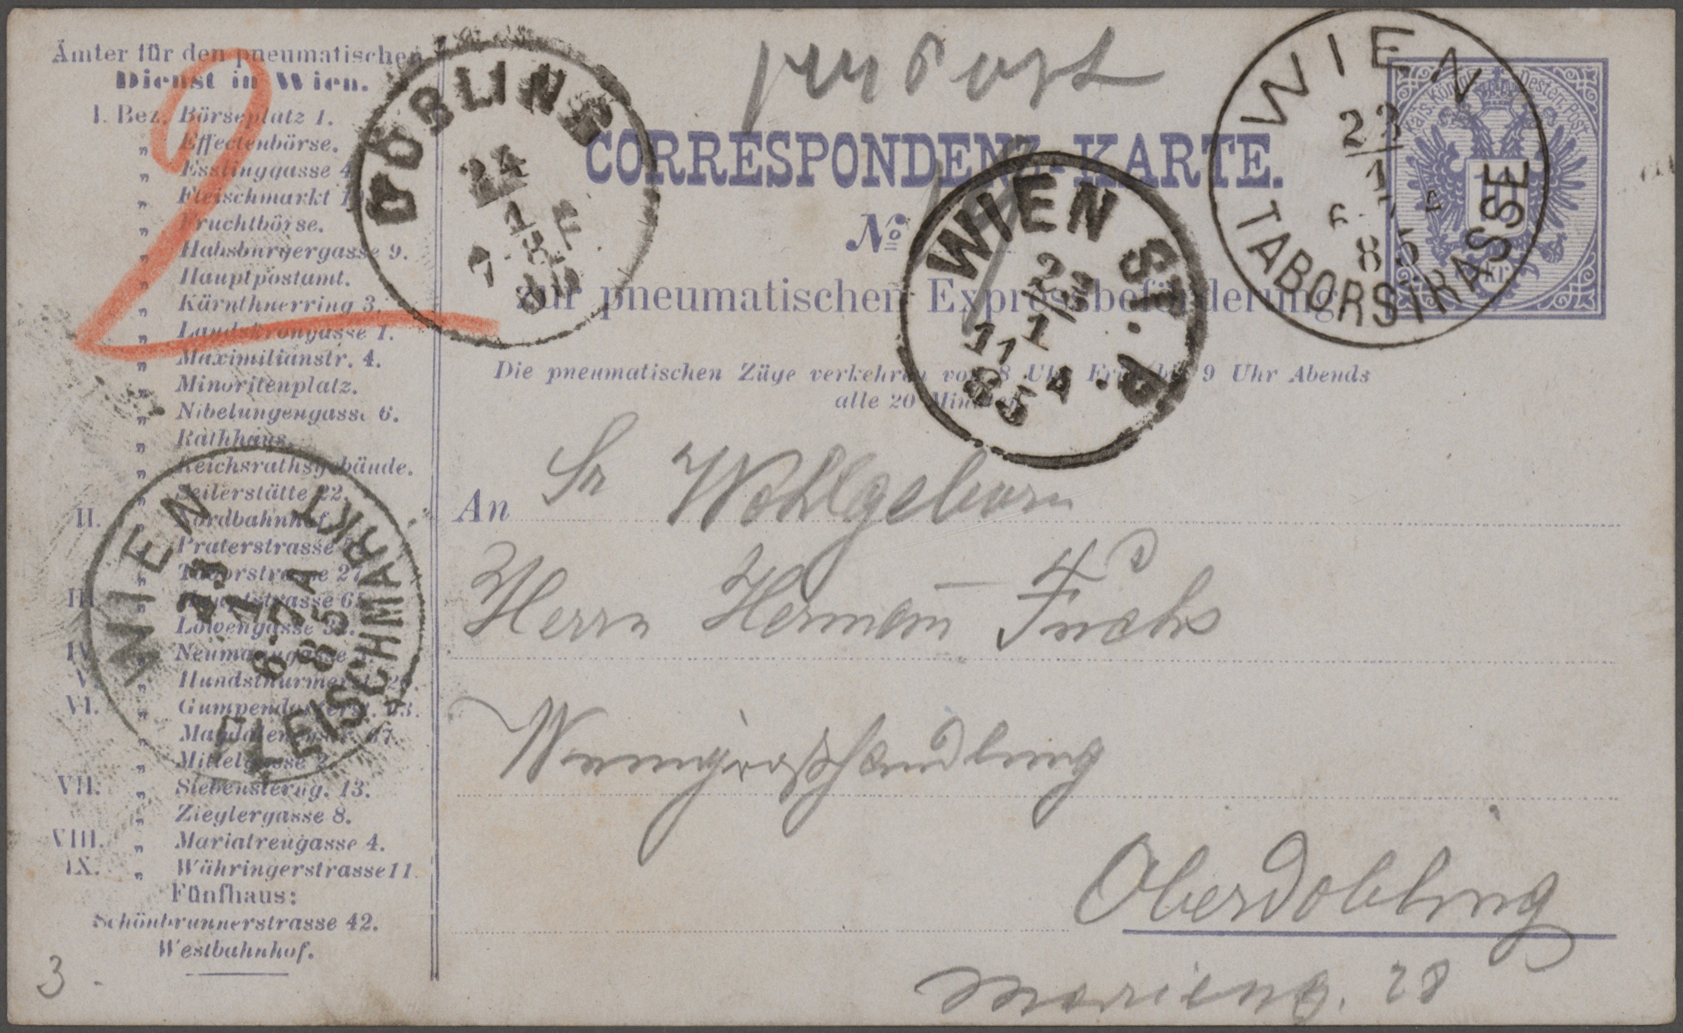 Ämter für den pneumatischen
Dienst in Wien.
I. Bez. Börseplatz 1.
„ Effectenbörse.
„ Esslinggasse 4
„ Fleischmarkt 1
„ Fruchtbörse.
„ Habsburgergasse 9.
„ Hauptpostamt.
„ Kärnthnerring 3.
„ Landskrongasse 1.
„ Maximilianstr. 4.
„ Minoritenplatz.
„ Nibelungengasse 6.
„ Rathhaus.
„ Reichsrathsgebäude.
„ Seilerstätte 22.
II. „ Nordbahnhof.
„ Praterstrasse
„ Taborstrasse 27
III. „ Hauptstrasse 6
„ Löwengasse
IV. „ Neumanngasse 3
V. „ Hundsthurmerst.
VI. „ Gumpendorferst. 63.
„ Magdalenenstr. 67.
„ Mittelgasse 2.
VII. „ Siebensterng. 13.
„ Zieglergasse 8.
VIII. „ Mariatreugasse 4.
IX. „ Währingerstrasse 11.
Fünfhaus:
Schönbrunnerstrasse 42.
Westbahnhof.
3.
2
per Post
CORRESPONDENZ-KARTE.
No
zur pneumatischen Expressbeförderung
Die pneumatischen Züge verkehren von 8 Uhr Früh bis 9 Uhr Abends
alle 20 Minuten.
An Sr Wohlgeborn
Herrn Hermann Fuchs
Weingroßhandlung
Oberdöbling
Marieng. 28
DÖBLING
24
1
7-8 F
85
WIEN ST. P.
23
1
11 A
85
WIEN
TABORSTRASSE
23
1
6-7 A
85
WIEN
FLEISCHMARKT
23
1
6-7 A
85